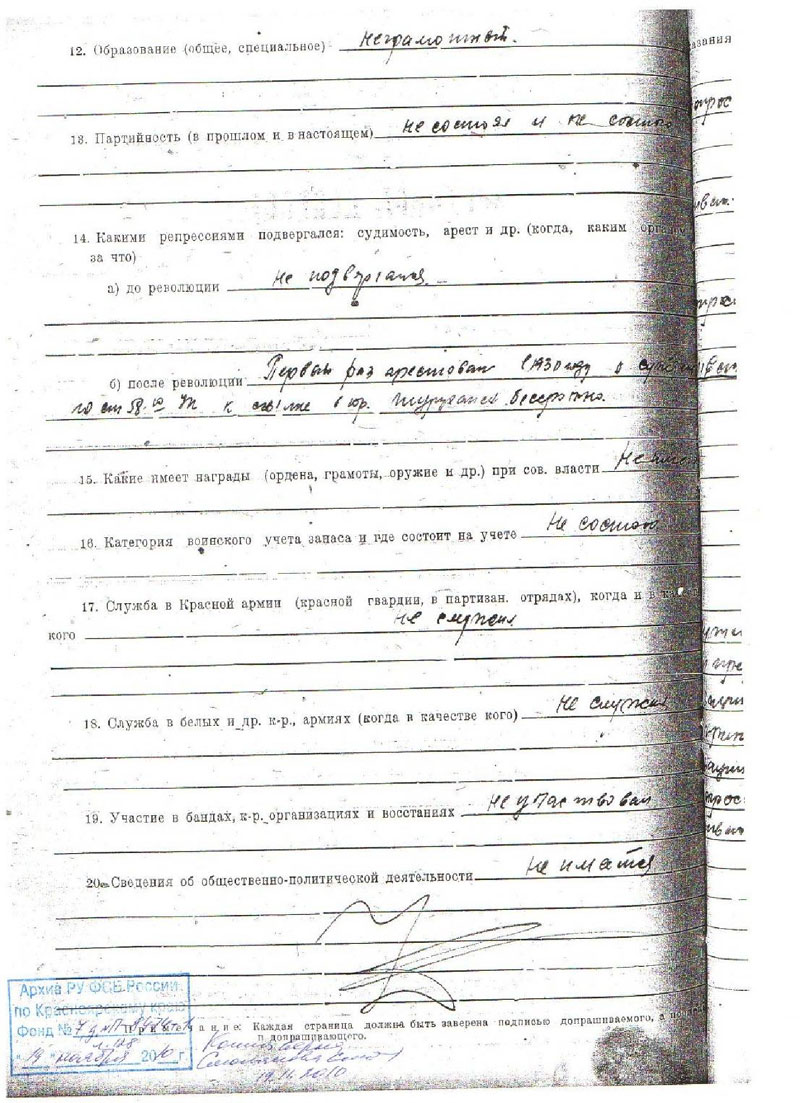 12. Образование (общее, специальное) неграмотный.
13. Партийность (в прошлом и в настоящем) не состоял и не состою
14. Какими репрессиями подвергался: судимость, арест и др. (когда, каким
за что)
а) до революции не подвергался
б) после революции Первый раз арестован в 1930 году и
по ст 58-10 УК к ссылке в гор. Туруханск бессрочно.
15. Какие имеет награды (ордена, грамоты, оружие и др.) при сов. власти
16. Категория воинского учета запаса и где состоит на учете Не состою
17. Служба в Красной армии (красной гвардии, в партизан. отрядах), когда и в
кого не служил
18. Служба в белых и др. к-р., армиях (когда в качестве кого) Не служил
19. Участие в бандах, к-р. организациях и восстаниях Не участвовал
20. Сведения об общественно-политической деятельности Не имеется
Архив РУ ФСБ России
по Красноярскому краю
Фонд № 7
"19" ноября 2010 г.
ание: Каждая страница должна быть заверена подписью допрашиваемого, а
и допрашивающего.
Копия верна
19.11.2010